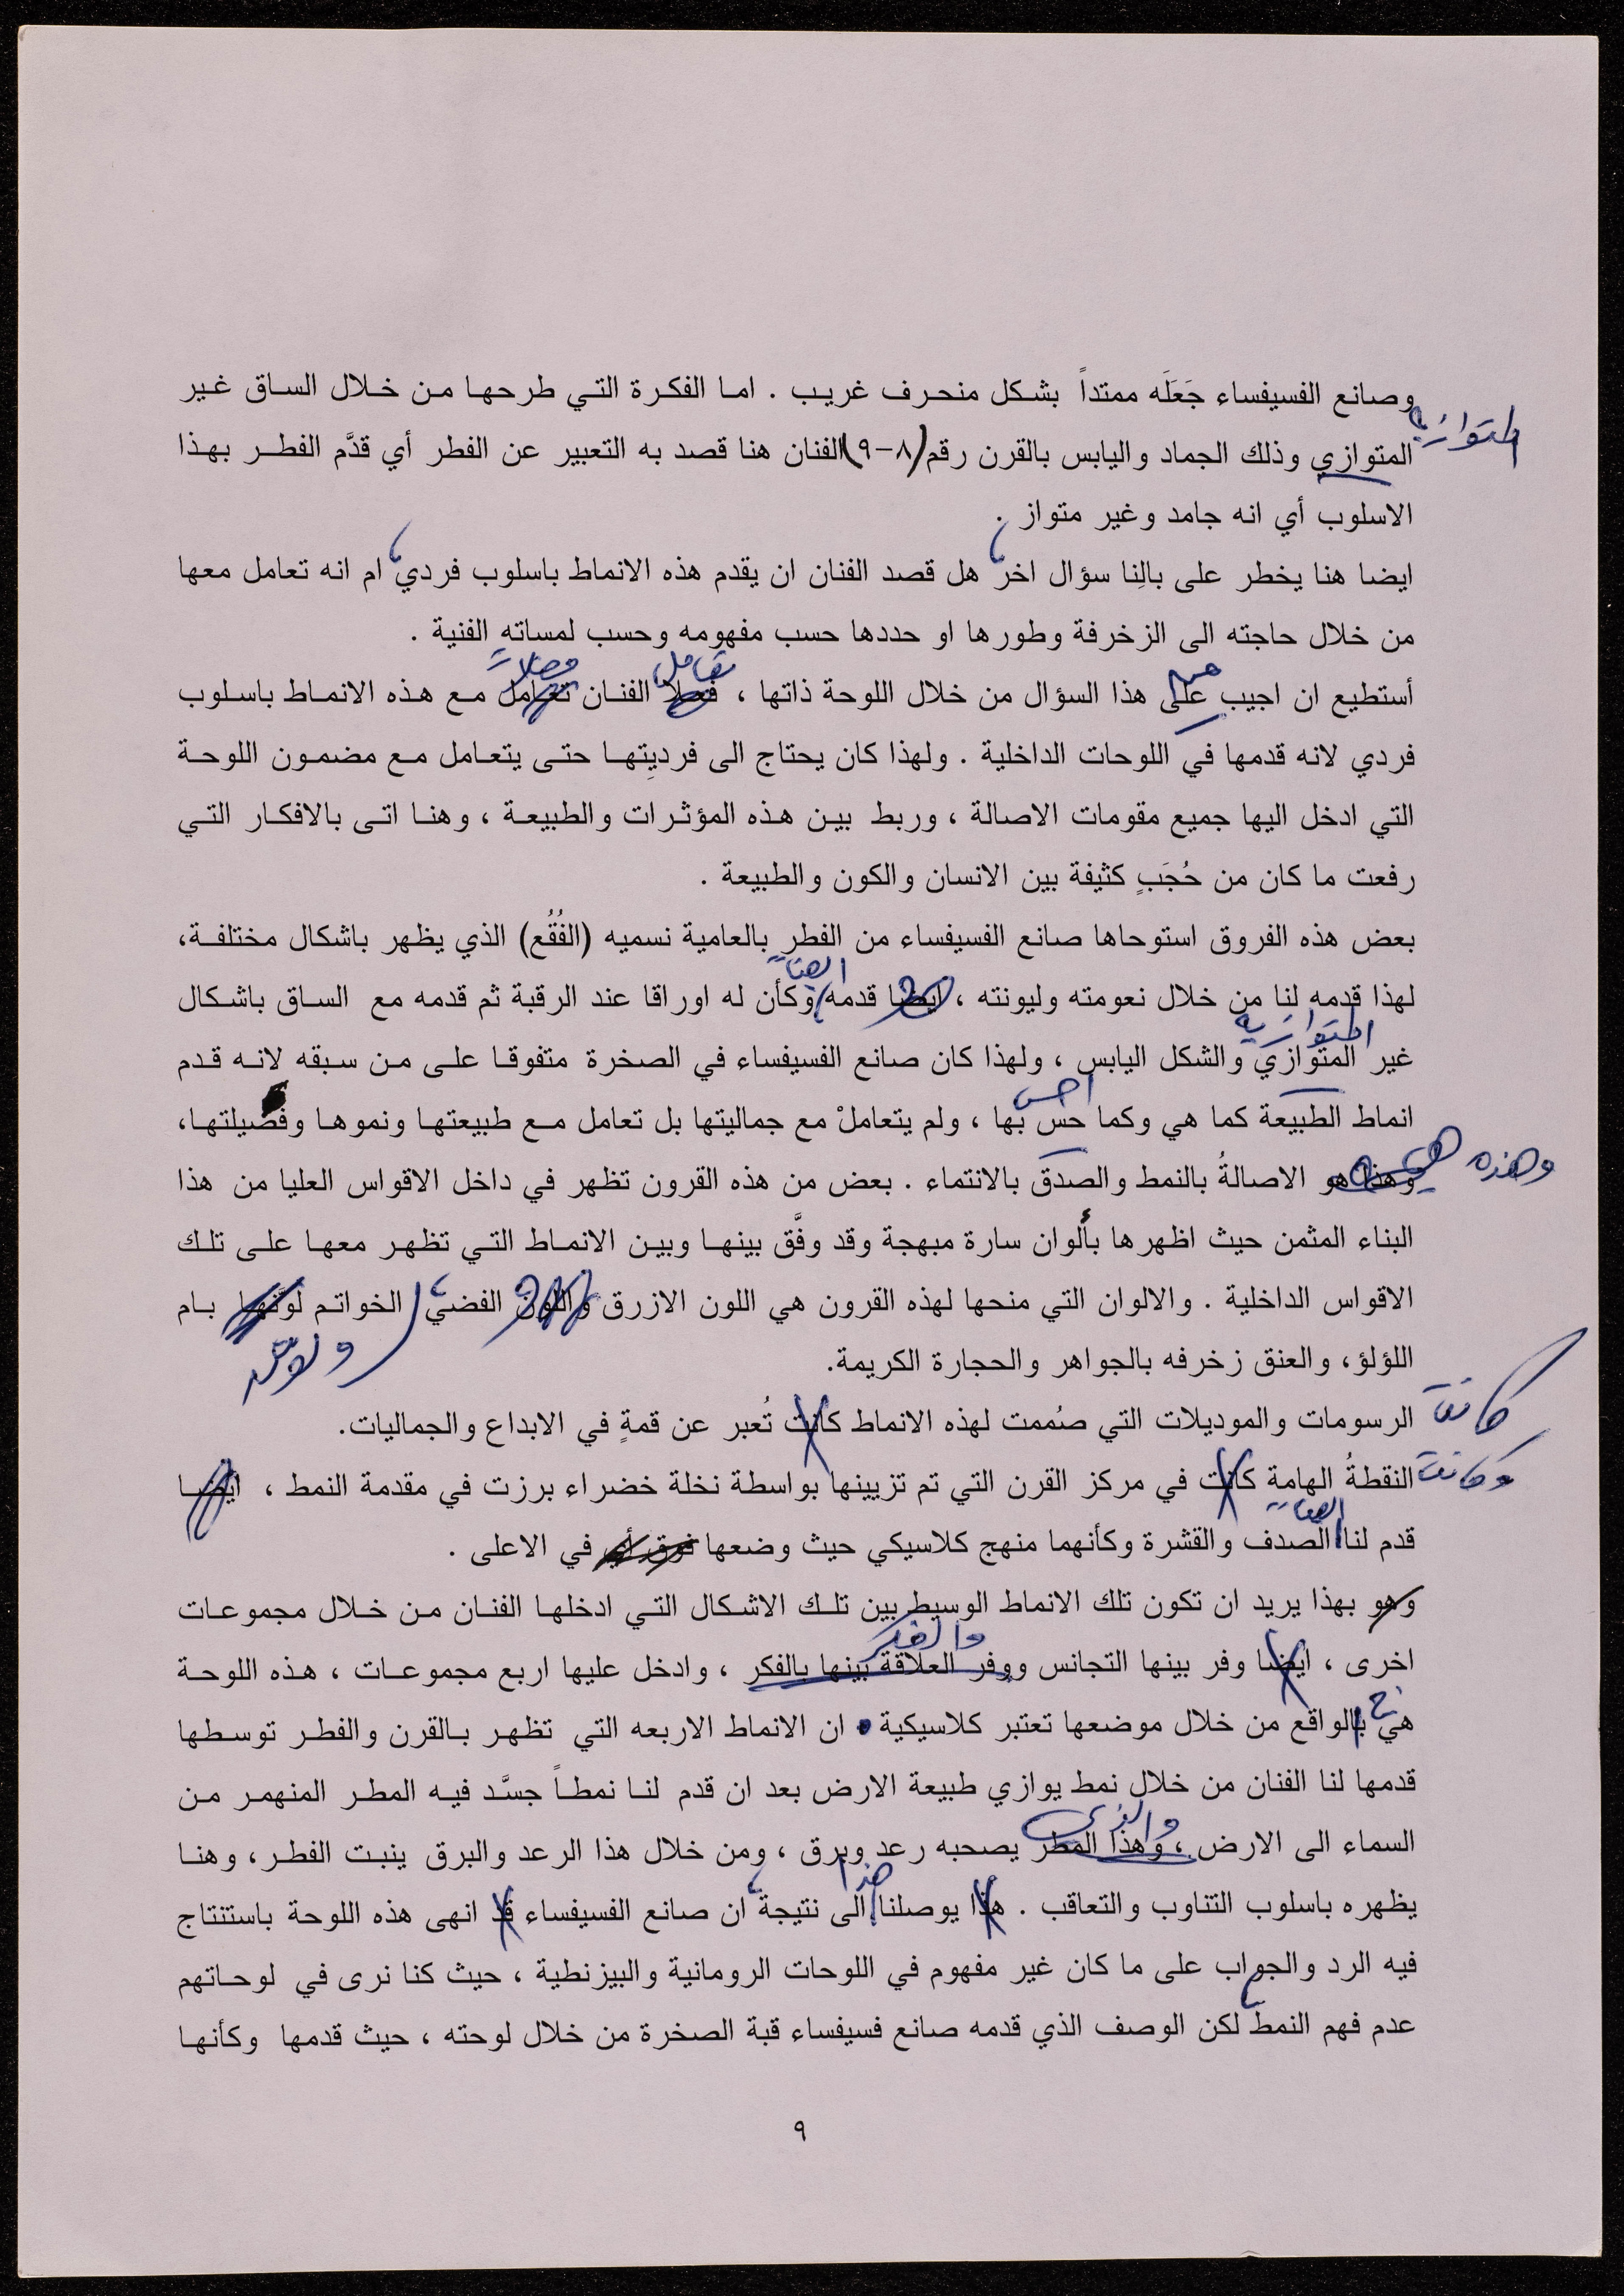 وصانع الفسيفساء جَعَلَه ممتداً بشكل منحرف غريب . اما الفكرة التي طرحها من خلال الساق غير
المتوازي وذلك الجماد واليابس بالقرن رقم (٨-٩) الفنان هنا قصد به التعبير عن الفطر أي قدَّم الفطر بهذا
الاسلوب أي انه جامد وغير متواز .
ايضا هنا يخطر على بالِنا سؤال اخر، هل قصد الفنان ان يقدم هذه الانماط باسلوب فردي، ام انه تعامل معها
من خلال حاجته الى الزخرفة وطورها او حددها حسب مفهومه وحسب لمساته الفنية .
تعامل فعلا
أستطيع ان اجيب على هذا السؤال من خلال اللوحة ذاتها ، فعلا الفنان تعامل مع هذه الانماط باسلوب
فردي لانه قدمها في اللوحات الداخلية . ولهذا كان يحتاج الى فرديِتها حتى يتعامل مع مضمون اللوحة
التي ادخل اليها جميع مقومات الاصالة ، وربط بين هذه المؤثرات والطبيعة ، وهنا اتى بالافكار التي
رفعت ما كان من حُجَبٍ كثيفة بين الانسان والكون والطبيعة .
بعض هذه الفروق استوحاها صانع الفسيفساء من الفطر بالعامية نسميه (الفُقُع) الذي يظهر باشكال مختلفة،
ايضا
لهذا قدمه لنا من خلال نعومته وليونته ، ايضا قدمه وكأن له اوراقا عند الرقبة ثم قدمه مع الساق باشكال
المتوازية
غير المتوازي والشكل اليابس ، ولهذا كان صانع الفسيفساء في الصخرة متفوقا على من سبقه لانه قدم
احس
انماط الطبيعة كما هي وكما حس بها ، ولم يتعاملْ مع جماليتها بل تعامل مع طبيعتها ونموها وفصيلتها،
وهذه هي
وهذا هو الاصالةُ بالنمط والصدق بالانتماء . بعض من هذه القرون تظهر في داخل الاقواس العليا من هذا
البناء المثمن حيث اظهرها بألوان سارة مبهجة وقد وفَّق بينها وبين الانماط التي تظهر معها على تلك
الاقواس الداخلية . والالوان التي منحها لهذه القرون هي اللون الازرق واللون الفضي، الخواتم لوَّنها بام
اللؤلؤ، والعنق زخرفه بالجواهر والحجارة الكريمة.
كانت
الرسومات والموديلات التي صُممت لهذه الانماط كانت تُعبر عن قمةٍ في الابداع والجماليات.
وكانت
النقطةُ الهامة كانت في مركز القرن التي تم تزيينها بواسطة نخلة خضراء برزت في مقدمة النمط ، ايضا
ايضا
قدم لنا الصدف والقشرة وكأنهما منهج كلاسيكي حيث وضعها فوق أي في الاعلى .
وهو بهذا يريد ان تكون تلك الانماط الوسيط بين تلك الاشكال التي ادخلها الفنان من خلال مجموعات
والفكر
اخرى ، ايضا وفر بينها التجانس ووفر العلاقة بينها بالفكر ، وادخل عليها اربع مجموعات ، هذه اللوحة
هي بالواقع من خلال موضعها تعتبر كلاسيكية . ان الانماط الاربعه التي تظهر بالقرن والفطر توسطها
قدمها لنا الفنان من خلال نمط يوازي طبيعة الارض بعد ان قدم لنا نمطاً جسَّد فيه المطر المنهمر من
والذي
السماء الى الارض ، وهذا المطر يصحبه رعد وبرق ، ومن خلال هذا الرعد والبرق ينبت الفطر، وهنا
هذا
يظهره باسلوب التناوب والتعاقب . هذا يوصلنا الى نتيجة، ان صانع الفسيفساء قد انهى هذه اللوحة باستنتاج
فيه الرد والجواب على ما كان غير مفهوم في اللوحات الرومانية والبيزنطية ، حيث كنا نرى في لوحاتهم
عدم فهم النمط، لكن الوصف الذي قدمه صانع فسيفساء قبة الصخرة من خلال لوحته ، حيث قدمها وكأنها
٩